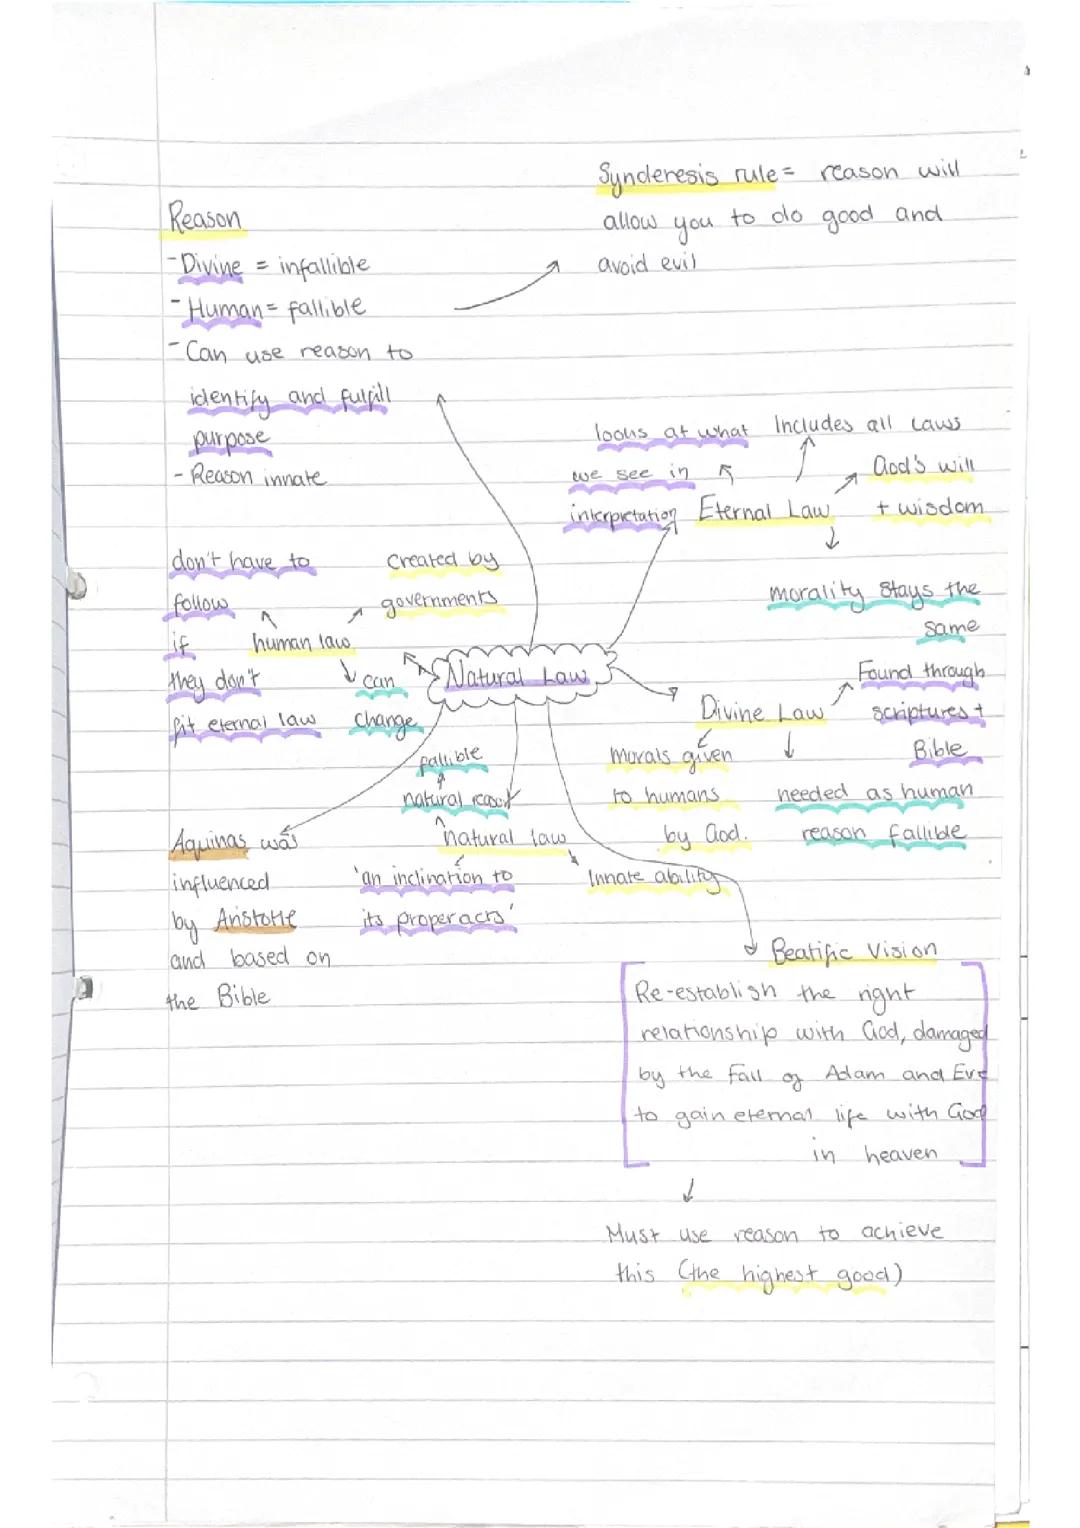 Synderesis rule = reason will
allow you to do good and
avoid evil
Reason
- Divine = infallible
- Human = fallible
- Can use reason to
identify and fulfill
purpose
- Reason innate
looks at what
we see in
interpretation
Includes all laws
God's will
+ wisdom
Eternal Law
morality stays the
same
don't have to
follow
if
they don't
fit eternal law
created by
governments
human law
can
change
Natural Law
Divine Law
Found through
scriptures +
Bible
Morals given
to humans
by God.
needed as human
reason fallible
fallible
natural reason
natural law
'an inclination to
its proper acts'
Innate ability
Aquinas was
influenced
by Aristotle
and based on
the Bible
Beatific Vision
Re-establish the right
relationship with God, damaged
by the Fall of Adam and Eve
to gain eternal life with God
in heaven
Must use reason to achieve
this (the highest good)